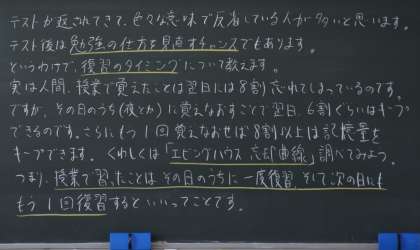 テストが返されてきて、色々な意味で反省している人が多いと思います。
テスト後は勉強の仕方を見直すチャンスでもあります。
というわけで、復習のタイミングについて教えます。
実は人間、授業で覚えたことは翌日には8割忘れてしまっているのです。
ですが、その日のうち(夜とか)に覚えなおすことで翌日、6割ぐらいはキープ
できるのです。さらにもう1回覚えなおせば8割以上は記憶量を
キープできます。くわしくは「エビングハウス 忘却曲線」調べてみよう。
つまり、授業で習ったことはその日のうちに一度復習、そして次の日にも
もう1回復習するといいってことです。